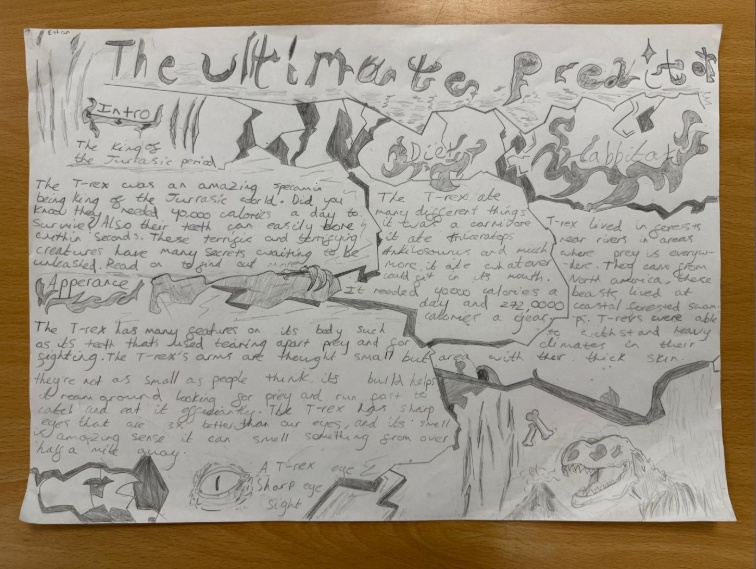 Ethan
The Ultimate Preditor
Intro
The King of
the Jurrasic period
The T-rex was an amazing specamin
being king of the Jurrasic world. Did you
know they needed 40,000 calories a day to
survive? Also their teeth can easily bone
within seconds. These terrific and terrifying
creatures have many secrets awaiting to be
unleashed. Read on to find out
Apperance
The T-rex has many features on its body such
as its teeth thats used tearing apart prey and for
fighting. The T-rex's arms are thought small but
they're not as small as people think. its build helps
it roam around looking for prey and run fast to
catch and eat it
The T-rex has sharp
eyes that are better than our eyes, and its smell
is amazing sense it can smell something from over
half a mile away.
A T-rex eye
Sharp eye
sight
Diet
The T-rex ate
many different things
it was a carnivore
it ate
and much
more, it ate whatever
could fit in its mouth.
It needed 40000 calories a
day and
calories a year
Habbitat
T-rex lived in forests
near rivers in areas
where prey is everyw-
here. They came from
North america, these
beasts lived at
coastal forested swam-
p. T-rexs were able
to withstand heavy
climates in their
area with ther thick skin.